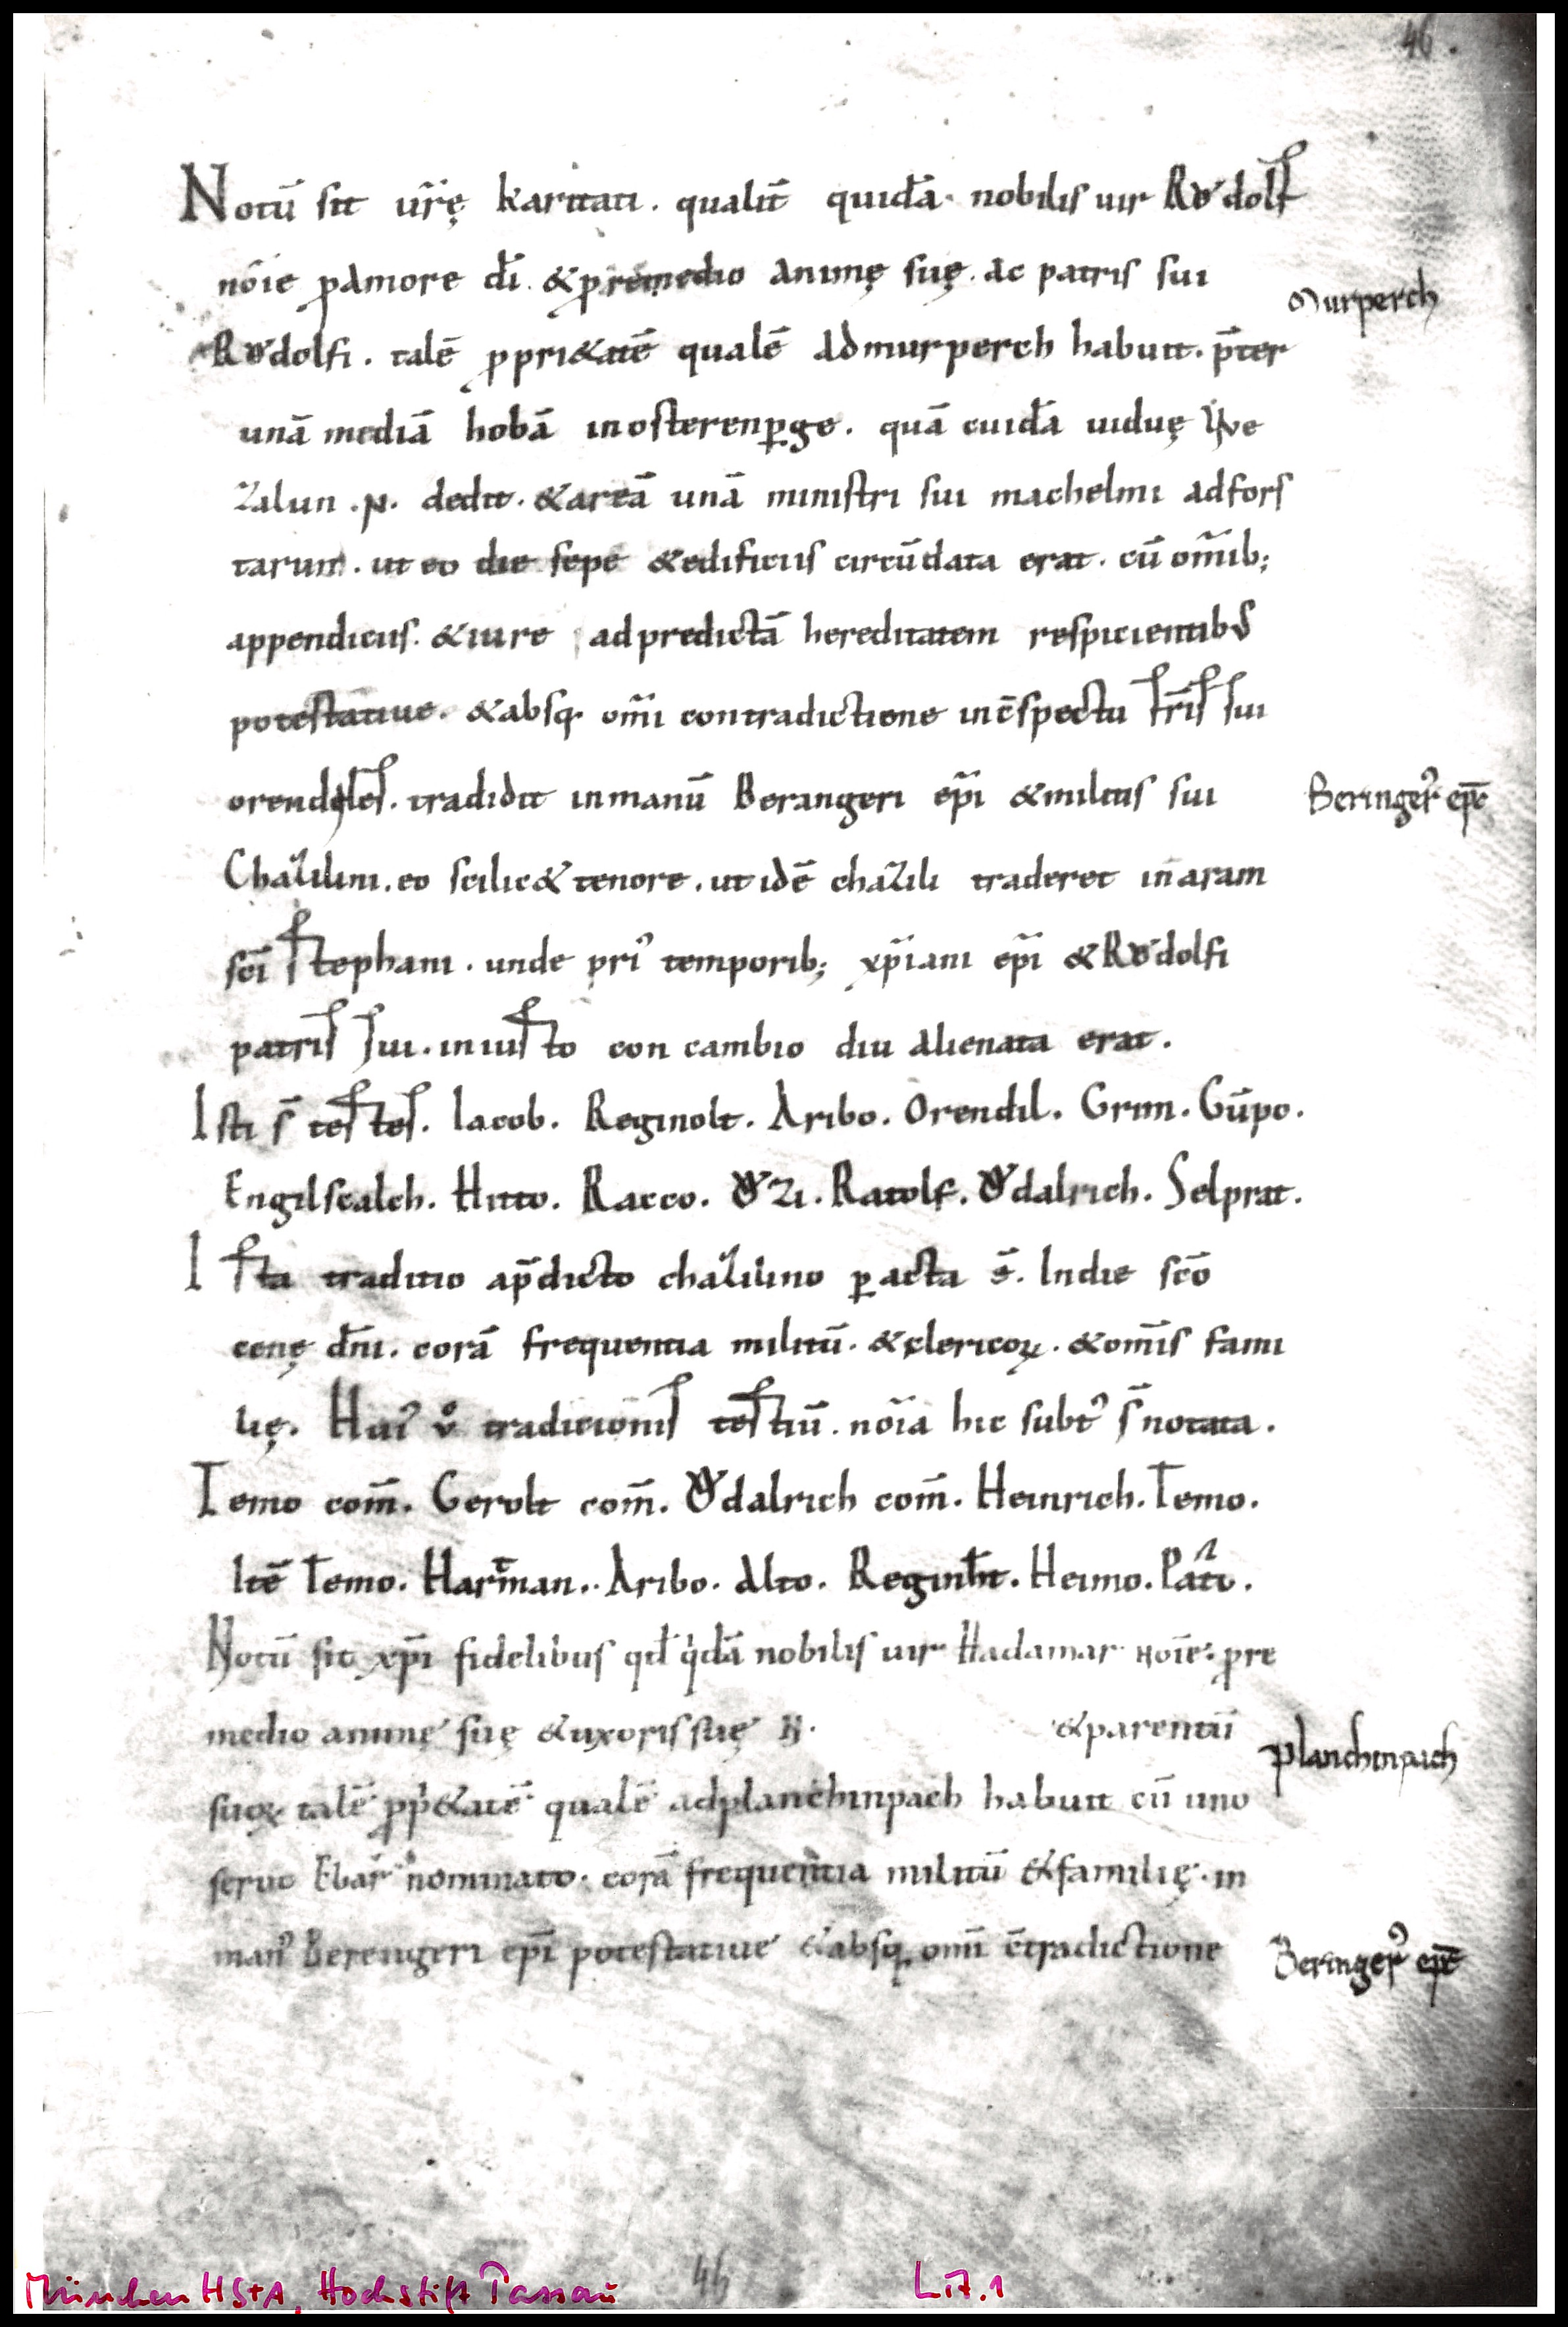 46.
Notū sit ur̄ę karitati. qualit̄ quidā. nobilis uir Rǒdolf
nōie ꝓ amore dī. & ꝓ remedio animę suę. ac patris sui
Murperch
Rǒdolfi. talē ꝓpri&atē qualē ad murperch habuit. p̄ter
unā mediā hobā in osterenꝑge. quā cuidā uiduę
zalun .N. dedit. & areā unā ministri sui machelmi ad fors
tarun. ut eo die sepe & edificiis circūdata erat. cū om̄ib;
appendiciis. & iure ad predictā hereditatem respicientibꝰ
potestatiue. & absq; om̄i contradictione in c̄spectu fr̄is sui
orendiles. tradidit in manū Berangeri ep̄i & militis sui
Beringerꝰ ep̄c
Chazilini. eo scilic& tenore. ut idē chazili traderet in aram
sc̄i stephani. unde priꝰ temporib; xp̄iani ep̄i & Rǒdolfi
patris sui. iniusto concambio diu alienata erat.
Isti s̄ testes. Iacob. Reginolt. Aribo. Orendil. Grim. Gūpo.
Engilscalch. Hitto. Racco. Ǒzi. Ratolf. Ǒdalrich. Selprat.
Ista traditio a p̄dicto chazilino ꝑacta ē. In die sc̄o
cenę dn̄i. corā frequentia militū. & clericoꝝ. & om̄is fami
lię. Huiꝰ ů tradicionis testiū. nōia hic subtꝰ s̄ notata.
Temo com̄. Gerolt com̄. Ǒdalrich com̄. Heinrich. Temo.
Itē Temo. Harman. Aribo. Alto. Reginb̄t. Heimo. Pato.
Notū sit xp̄i fidelibus qd̄ qͥdā nobilis uir Hadamar nōie. ꝓ re
medio animę suę & uxoris suę N. & parentū
Planchinpach
suoꝝ talē ꝓpͥ&atē qualē ad planchinpach habuit cū uno
seruo Ebar nominato. corā frequentia militū & familię. in
manꝰ Berengeri ep̄i potestatiue & absq; omī c̄tradictione
Beringerꝰ ep̄c
München HStA, Hochstift Passau 46 Lit. 1